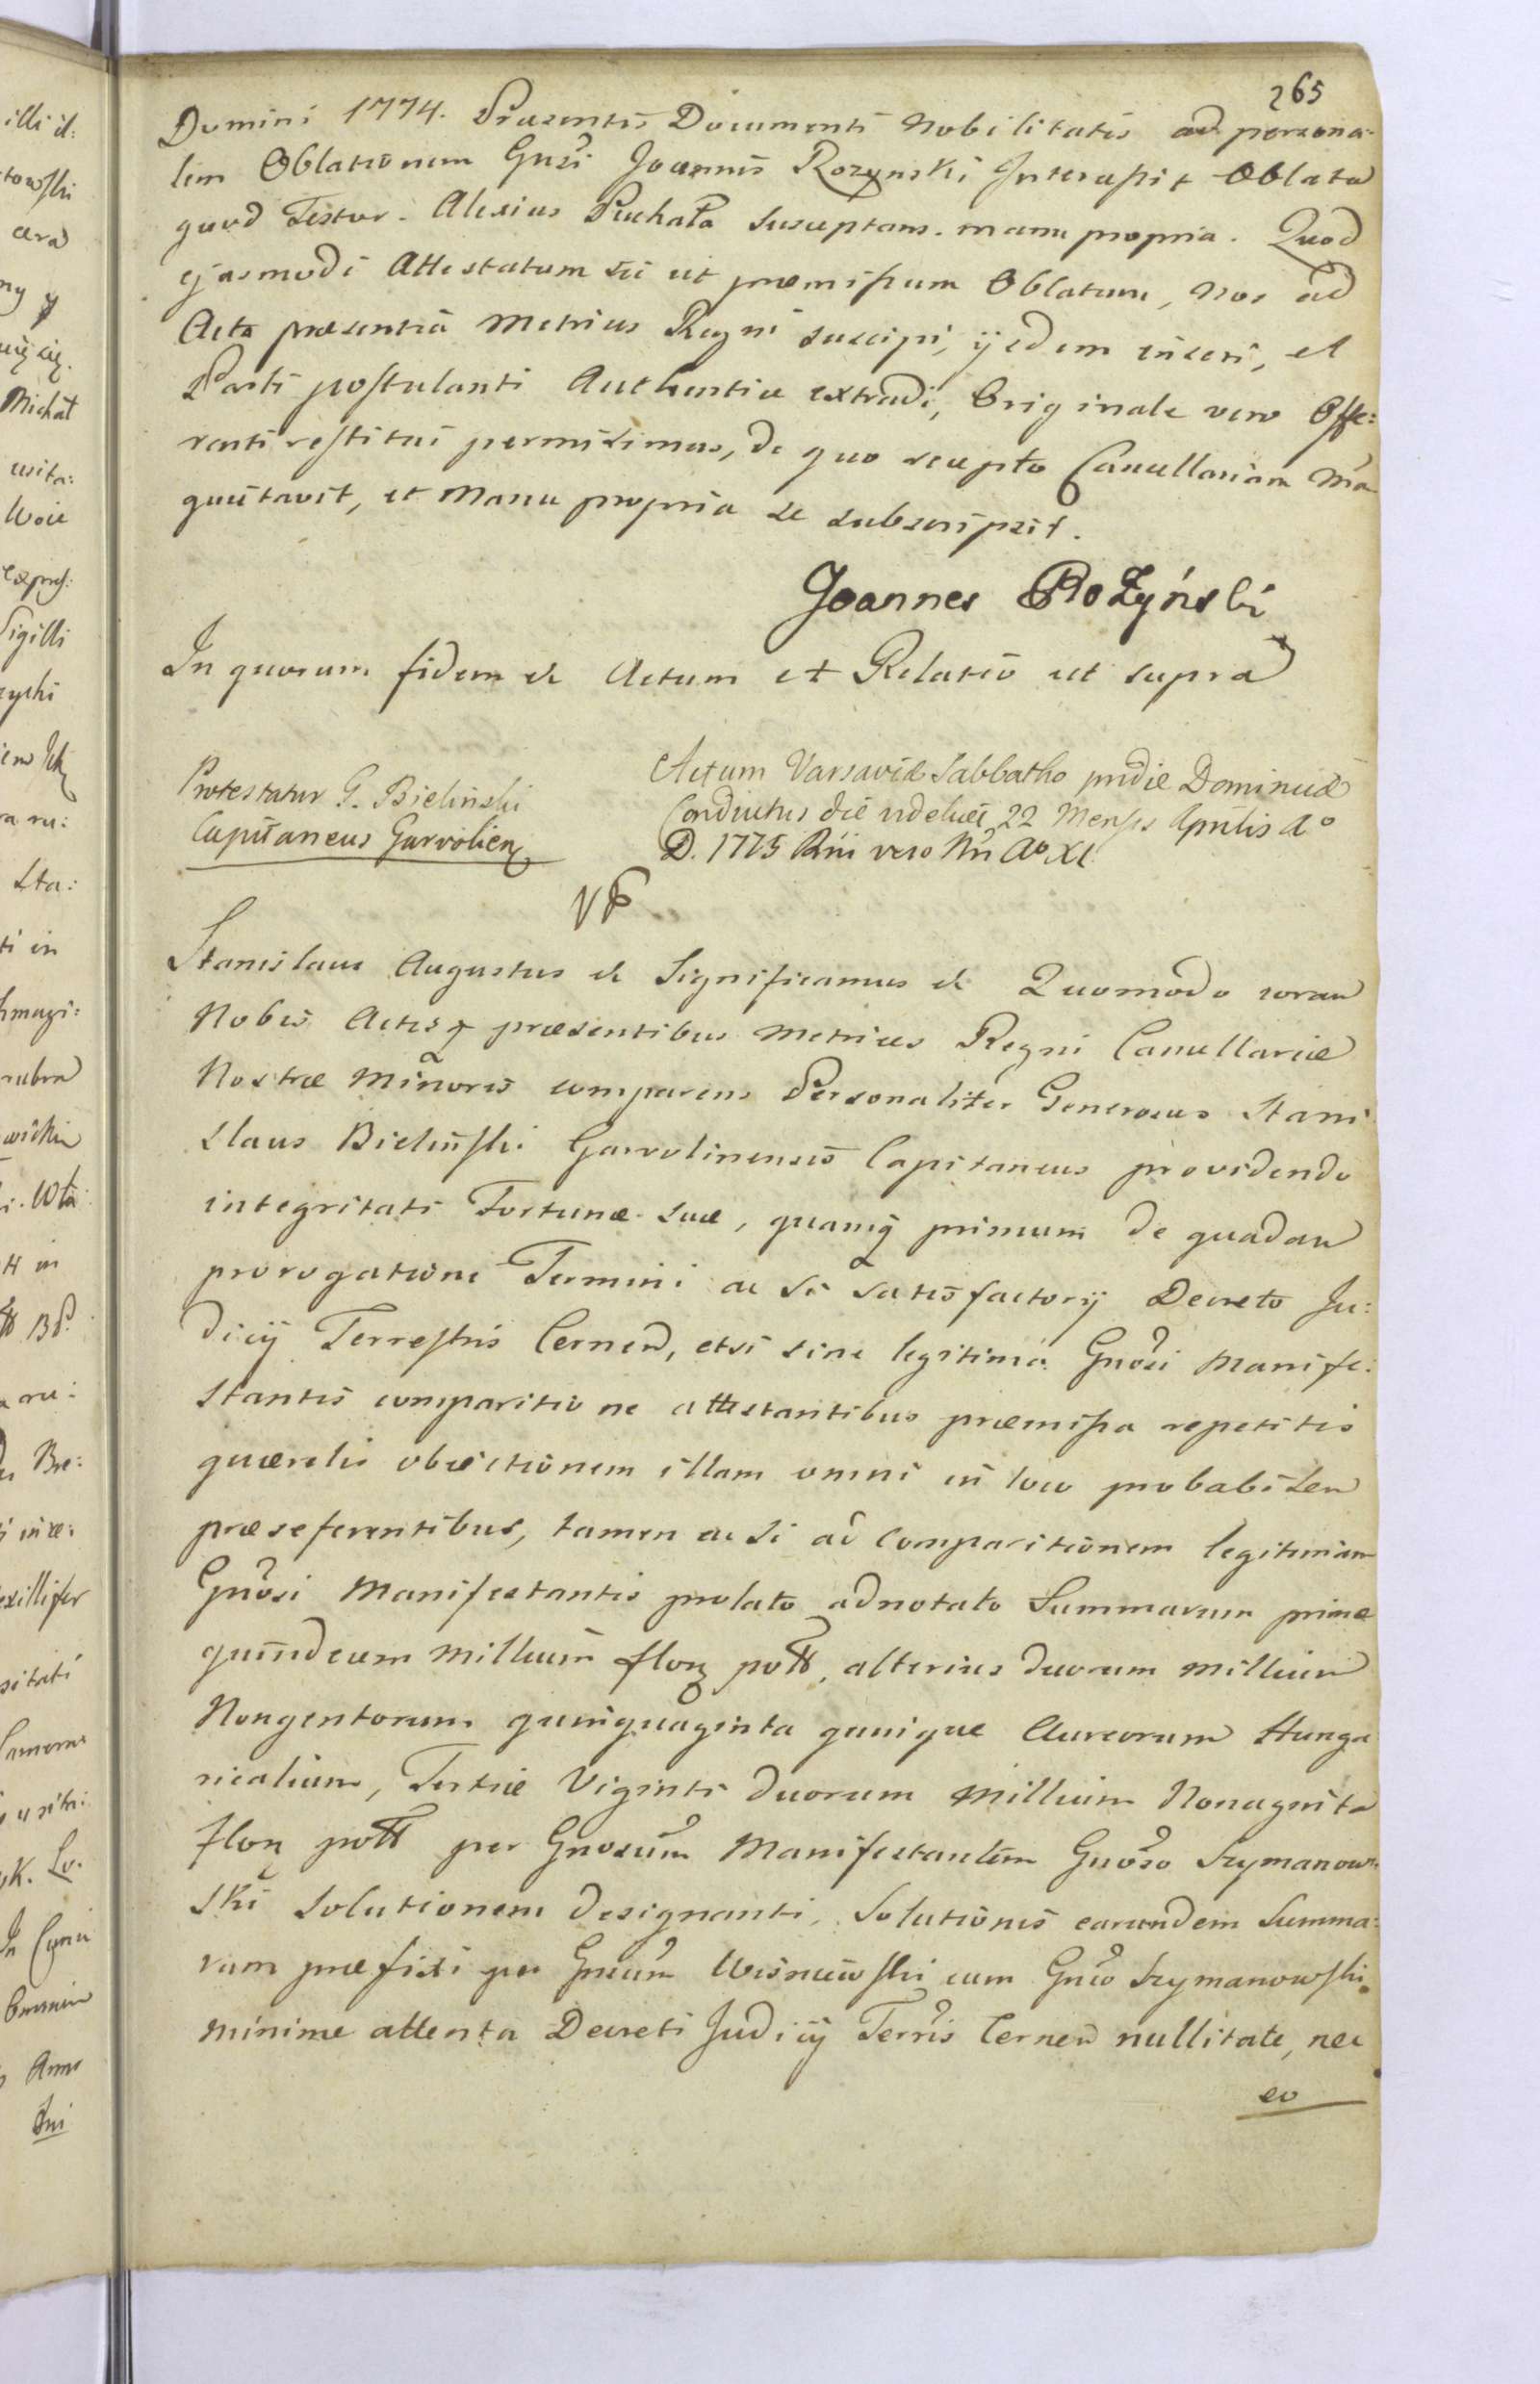 265
Domini 1774. Præsentis Documenti Nobilitatis ad persona-
lem Oblationem Gnsi Joannis Rozynski Intercessit Oblata
quod Testor. Alexius Puchała Susceptans. manu propria. Quod
ejusmodi Attestatum sic ut præmissum Oblatum, Nos ad
Acta præsentia Metrices Regni suscipi, ijsdem inseri, et
Parti postulanti Authentice extradi, Originale vero Offe:
renti restitui permisimus, de quo recepto Cancellariam Nrã
quietavit, et Manu propria se subscripsit.
Joannes Rożyński
In quorum fidem &c Actum et Relatio ut supra
Protestatur G. Bielinski
Capitaneus Garvolien
Actum Varsaviæ Sabbatho pridie Dominicæ
Conductus die videlicet 22 Mensis Aprilis Ao
D. 1775 Rni vero Nri Ao XI.
Stanislaus Augustus &c Significamus &c Quomodo coram
Nobis Actisq præsentibus Metrices Regni Cancellariæ
Nostræ Minoris comparens Personaliter Generosus Stani
slaus Bielinski Garvolinensis Capitaneus providendo
integritati Fortunæ suæ, quamq primum de quadam
prorogatione Termini ac si satisfactorij Decreto Ju:
dicij Terrestris Cernen, etsi sine legitima Gnosi Manife:
stantis comparitione attestantibus præmissa repetitis
querelis obiectionem illam omni in loco probabilem
præseferentibus, tamen ac si ad Comparitionem legitimam
Gnosi Manifestantis prolato adnotato Summarum primæ
quindecim Millium flor poll, alterius duorum millium
Nongentorum quinquaginta quinque Aureorum Hunga
ricalium, Tertiæ Viginti duorum Millium Nonaginta
flor poll per Gnosum Manifestantem Gnoso Szymanow:
ski Solutionem designanti, Solutionis earundem Summa:
rum præfixi per Gnsum Wisniewski cum Gnso Szymanowski
minime attenta Decreti Judicij Terris Cernen nullitate, nec
eo